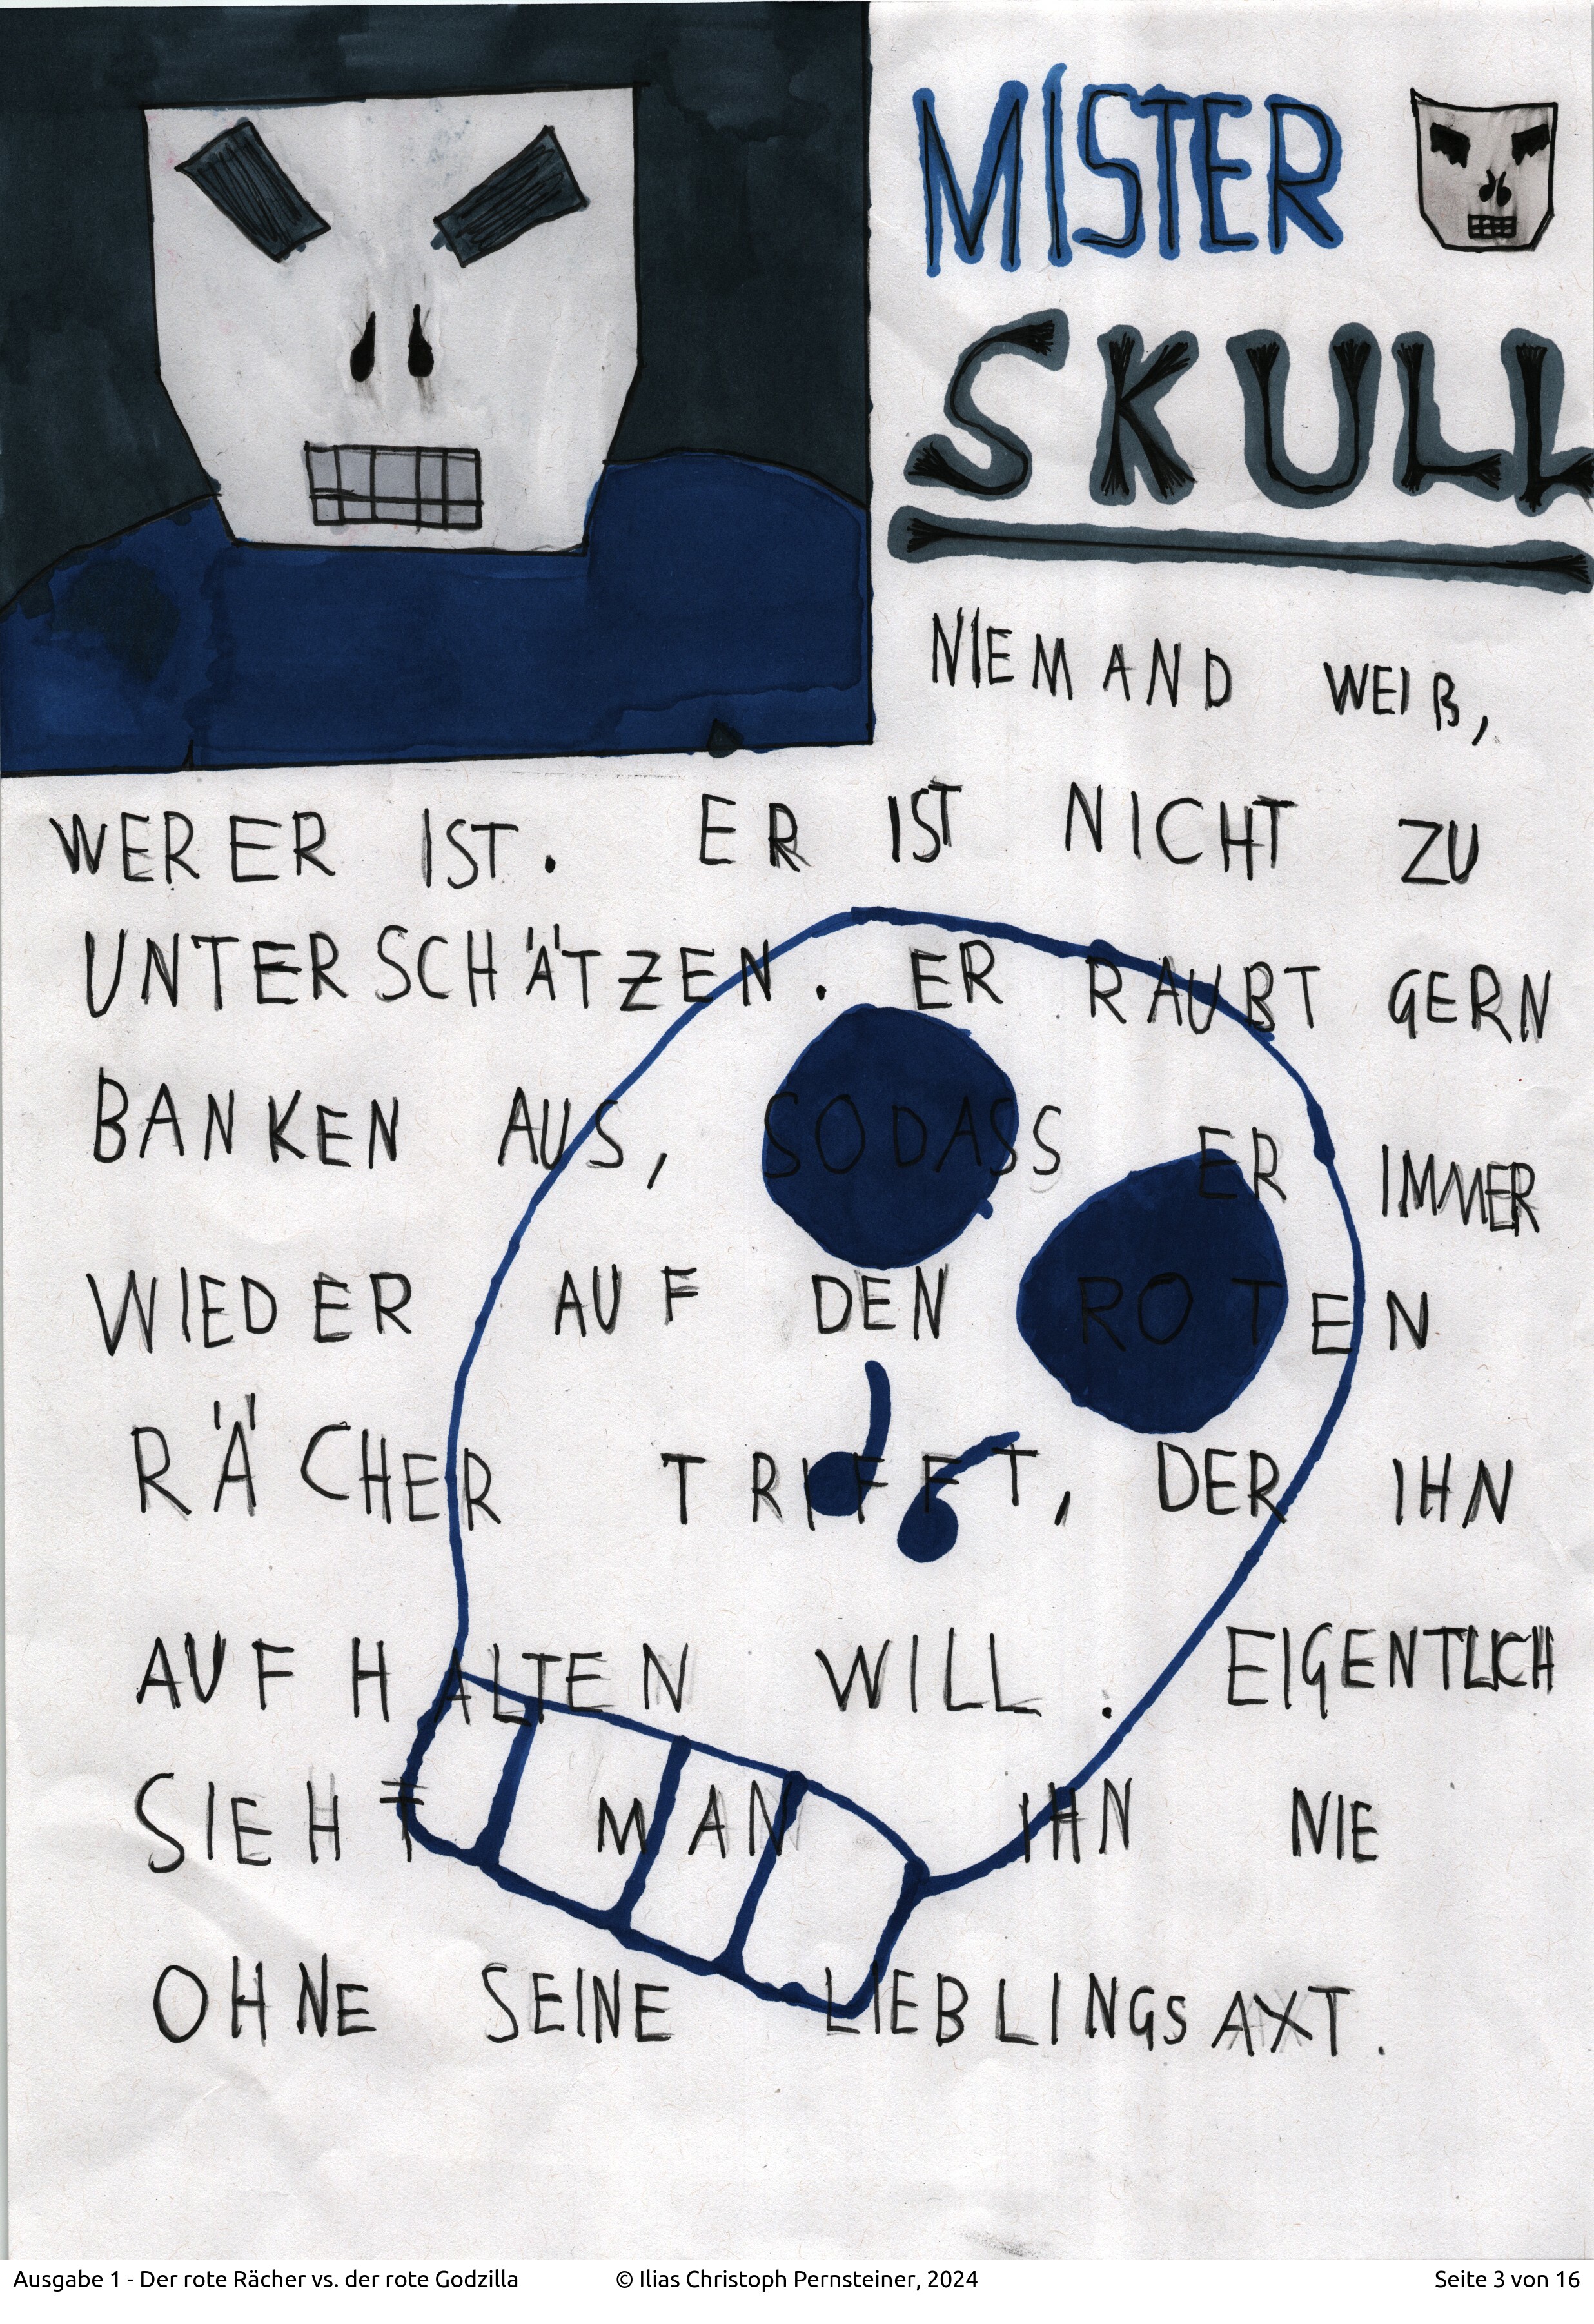 MISTER
SKULL
NIEMAND WEIß,
WER ER IST. ER IST NICHT ZU
UNTERSCHÄTZEN. ER RAUBT GERN
BANKEN AUS, SODASS ER IMMER
WIEDER AUF DEN ROTEN
RÄCHER TRIFFT, DER IHN
AUFHALTEN WILL. EIGENTLICH
SIEHT MAN IHN NIE
OHNE SEINE LIEBLINGSAXT.
Ausgabe 1 - Der rote Rächer vs. der rote Godzilla © Ilias Christoph Pernsteiner, 2024 Seite 3 von 16